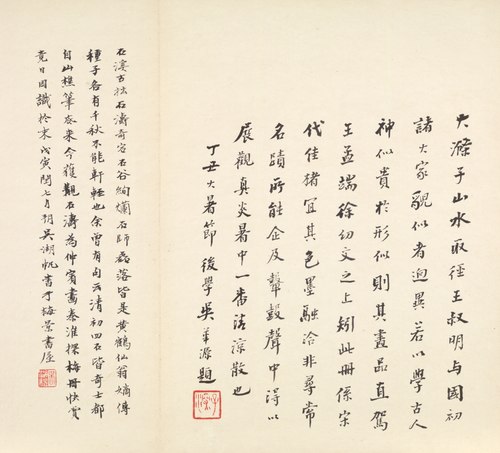 大滌子山水取徑王叔明與國初
諸大家貌似者迥異若以學古人
神似貴於形似則其畫品直駕
王孟端徐幼文之上矧此冊係宋
代佳楮宜其色墨融洽非尋常
名蹟所能企及鼙鼓聲中得以
展觀真炎暑中一番清涼散也
丁丑大暑節後學吳華源題
石溪古拙石濤奇宕石谷絢爛石師磊落皆是黃鶴仙翁嫡傳
種子各有千秋不能軒輊也余曾有句云清初四石皆奇士都
自山樵筆底來今復觀石濤為仲賓畫秦淮探梅冊快賞
竟日因識於末戊寅閏七月朔吳湖帆書于梅景書屋